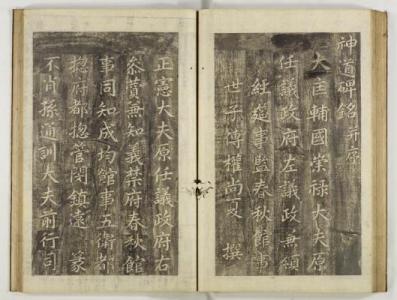 神道碑銘并序
大匡輔國崇祿大夫原
任議政府左議政兼領
經筵事監春秋館事
世子傅權尚夏 撰
正憲大夫原任議政府右
叅贊兼知義禁府春秋館
事同知成均館事五衛都
揔府都揔管閔鎮遠 篆
不肖孫通訓大夫前行司